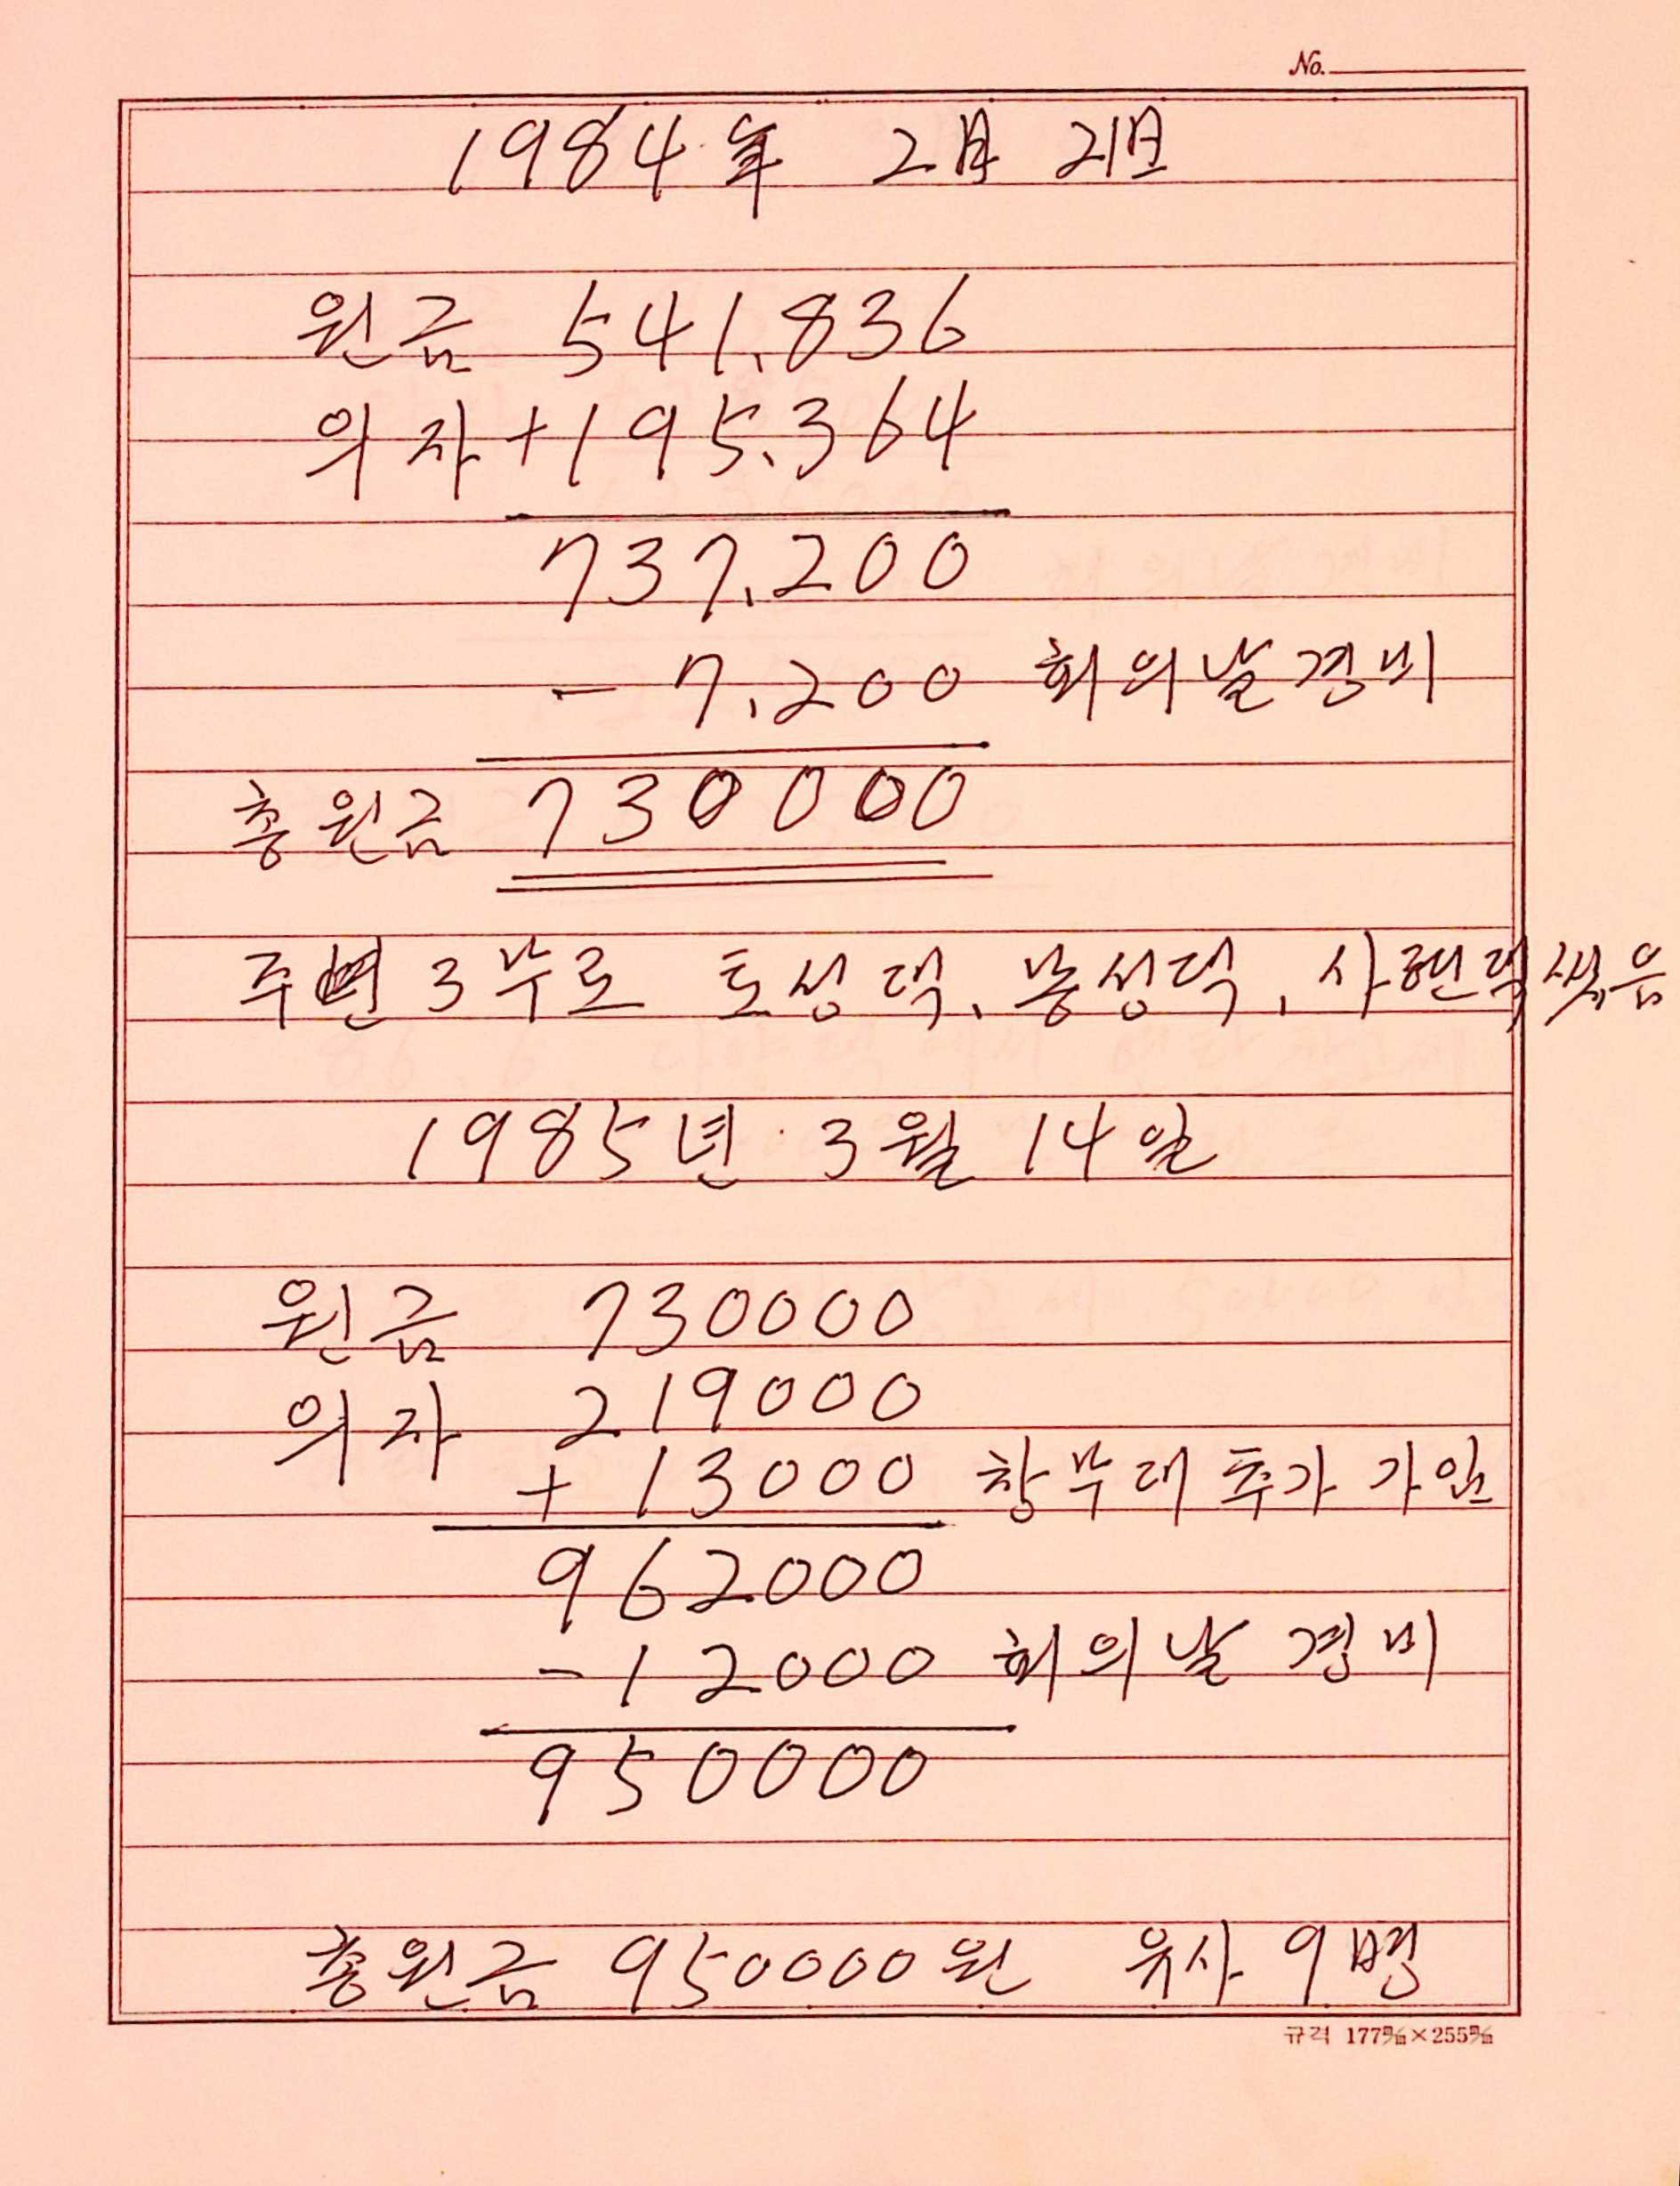 No.
1984年 2月 21日
원금 541,836
의자 +195,364
737,200
- 7,200 회의날경비
총원금 730000
주변 3부로 토성댁, 농성댁, 사랜댁 썼음
1985년 3월 14일
원금 730000
의자 219000
+ 13000 창부대 추가 가입
962000
- 12000 회의날 경비
950000
총원금 950000원 유사 9명
규격 177㎜×255㎜